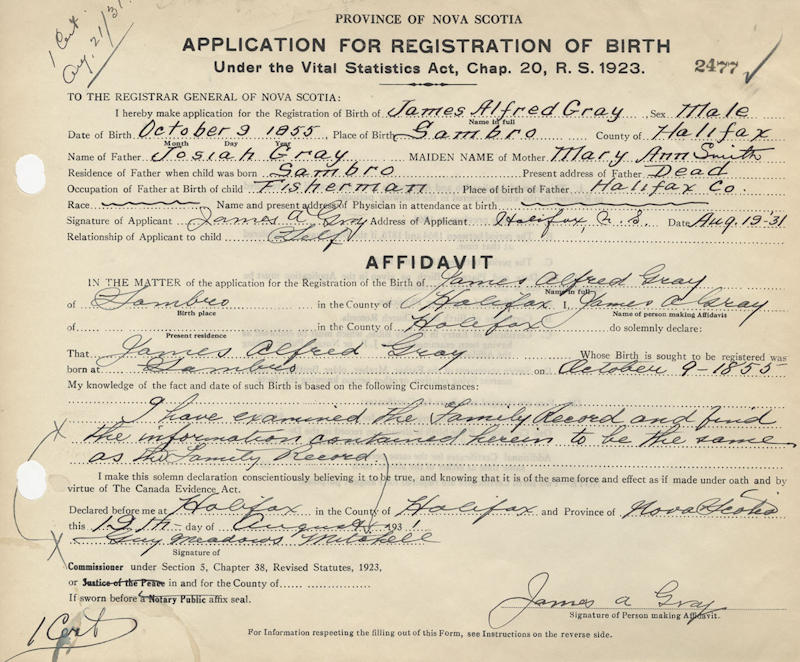 1 Cert
Aug. 21/31
PROVINCE OF NOVA SCOTIA
APPLICATION FOR REGISTRATION OF BIRTH
Under the Vital Statistics Act, Chap. 20, R. S. 1923.
2477
TO THE REGISTRAR GENERAL OF NOVA SCOTIA:
I hereby make application for the Registration of Birth of James Alfred Gray Sex Male
Name in full
Date of Birth October 9 1855, Place of Birth Sambro County of Halifax
Month Day Year
Name of Father Josiah Gray MAIDEN NAME of Mother Mary Ann Smith
Residence of Father when child was born Sambro Present address of Father Dead
Occupation of Father at Birth of child Fisherman Place of birth of Father Halifax Co.
Race Name and present address of Physician in attendance at birth
Signature of Applicant James A Gray Address of Applicant Halifax, N. S. Date Aug. 19-31
Relationship of Applicant to child Self
AFFIDAVIT
IN THE MATTER of the application for the Registration of the Birth of James Alfred Gray
Name in full
of Sambro in the County of Halifax I, James A Gray
Birth place Name of person making Affidavit
of in the County of Halifax do solemnly declare:
Present residence
That James Alfred Gray Whose Birth is sought to be registered was
born at Sambro on October 9-1855
My knowledge of the fact and date of such Birth is based on the following Circumstances:
I have examined the Family Record and find
the information contained herein to be the same
as the Family Record
I make this solemn declaration conscientiously believing it to be true, and knowing that it is of the same force and effect as if made under oath and by
virtue of The Canada Evidence Act.
Declared before me at Halifax in the County of Halifax and Province of Nova Scotia
this 19th day of August 1931
Guy Meadows Mitchell
Signature of
Commissioner under Section 5, Chapter 38, Revised Statutes, 1923,
or Justice of the Peace in and for the County of
If sworn before a Notary Public affix seal.
James A Gray
Signature of Person making Affidavit.
1 Cert
For Information respecting the filling out of this Form, see Instructions on the reverse side.